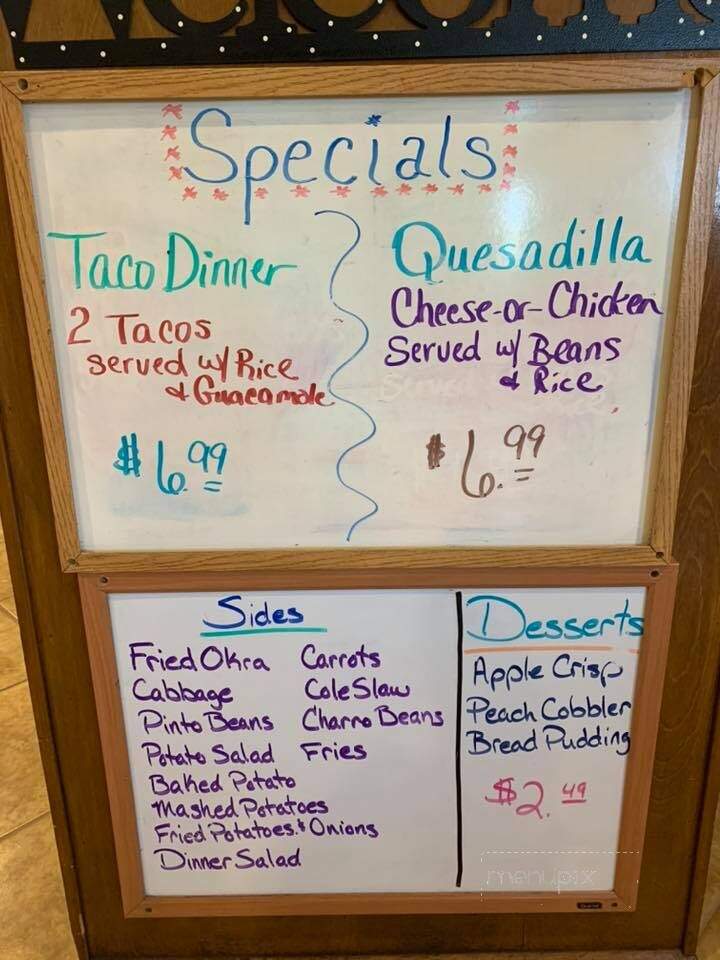 Welcome
Specials
Taco Dinner
2 Tacos
served w/ Rice
& Guacamole
$6.99
Quesadilla
Cheese-or-Chicken
Served w/ Beans
& Rice
$6.99
Sides
Fried Okra
Cabbage
Pinto Beans
Potato Salad
Baked Potato
Mashed Potatoes
Fried Potatoes & Onions
Dinner Salad
Carrots
Cole Slaw
Charro Beans
Fries
Desserts
Apple Crisp
Peach Cobbler
Bread Pudding
$2.49
menupix